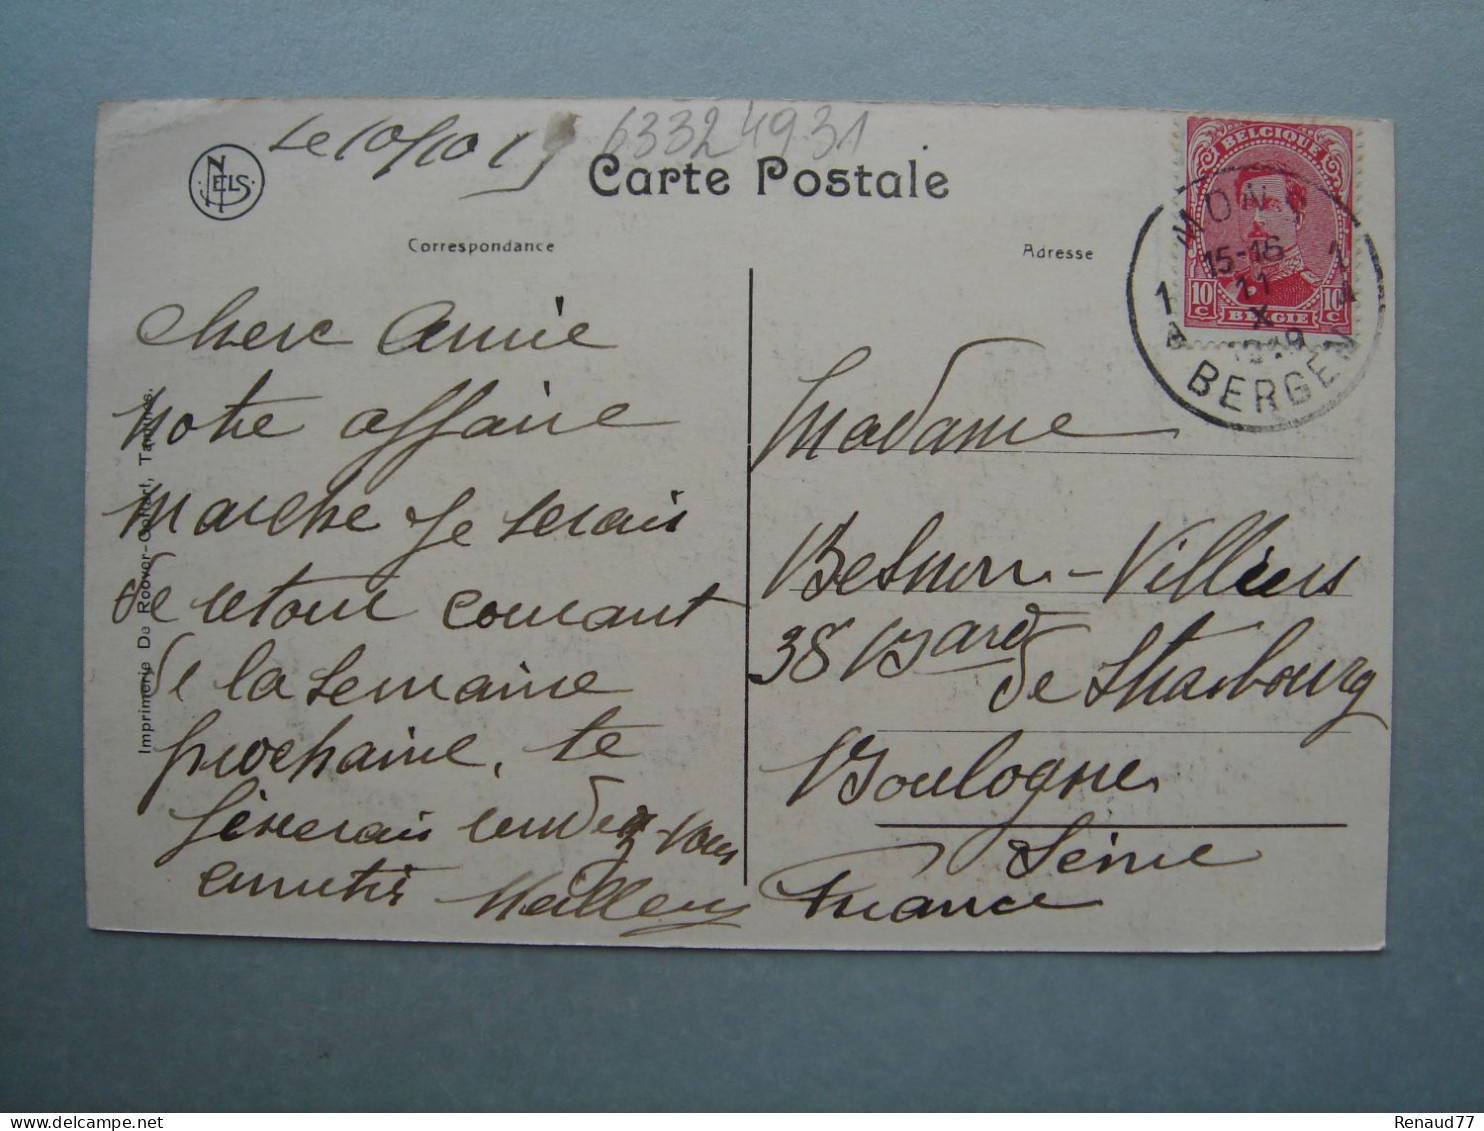 NELS
Le 10/10 19
63324931
Carte Postale
Correspondance
Adresse
BELGIQUE
10 C
10 C
BELGIE
MONS
15-16
11
X
1919
1
1
BERGEN
Chere Amie
notre affaire
marche Je serais
de retour courant
de la semaine
prochaine, te
fixerais rendez-vous
amitis
Madame
Villiers
38 Bard
de Strasbourg
Boulogne
Seine
France
Imprimerie De Roover-Tamines.
Renaud77